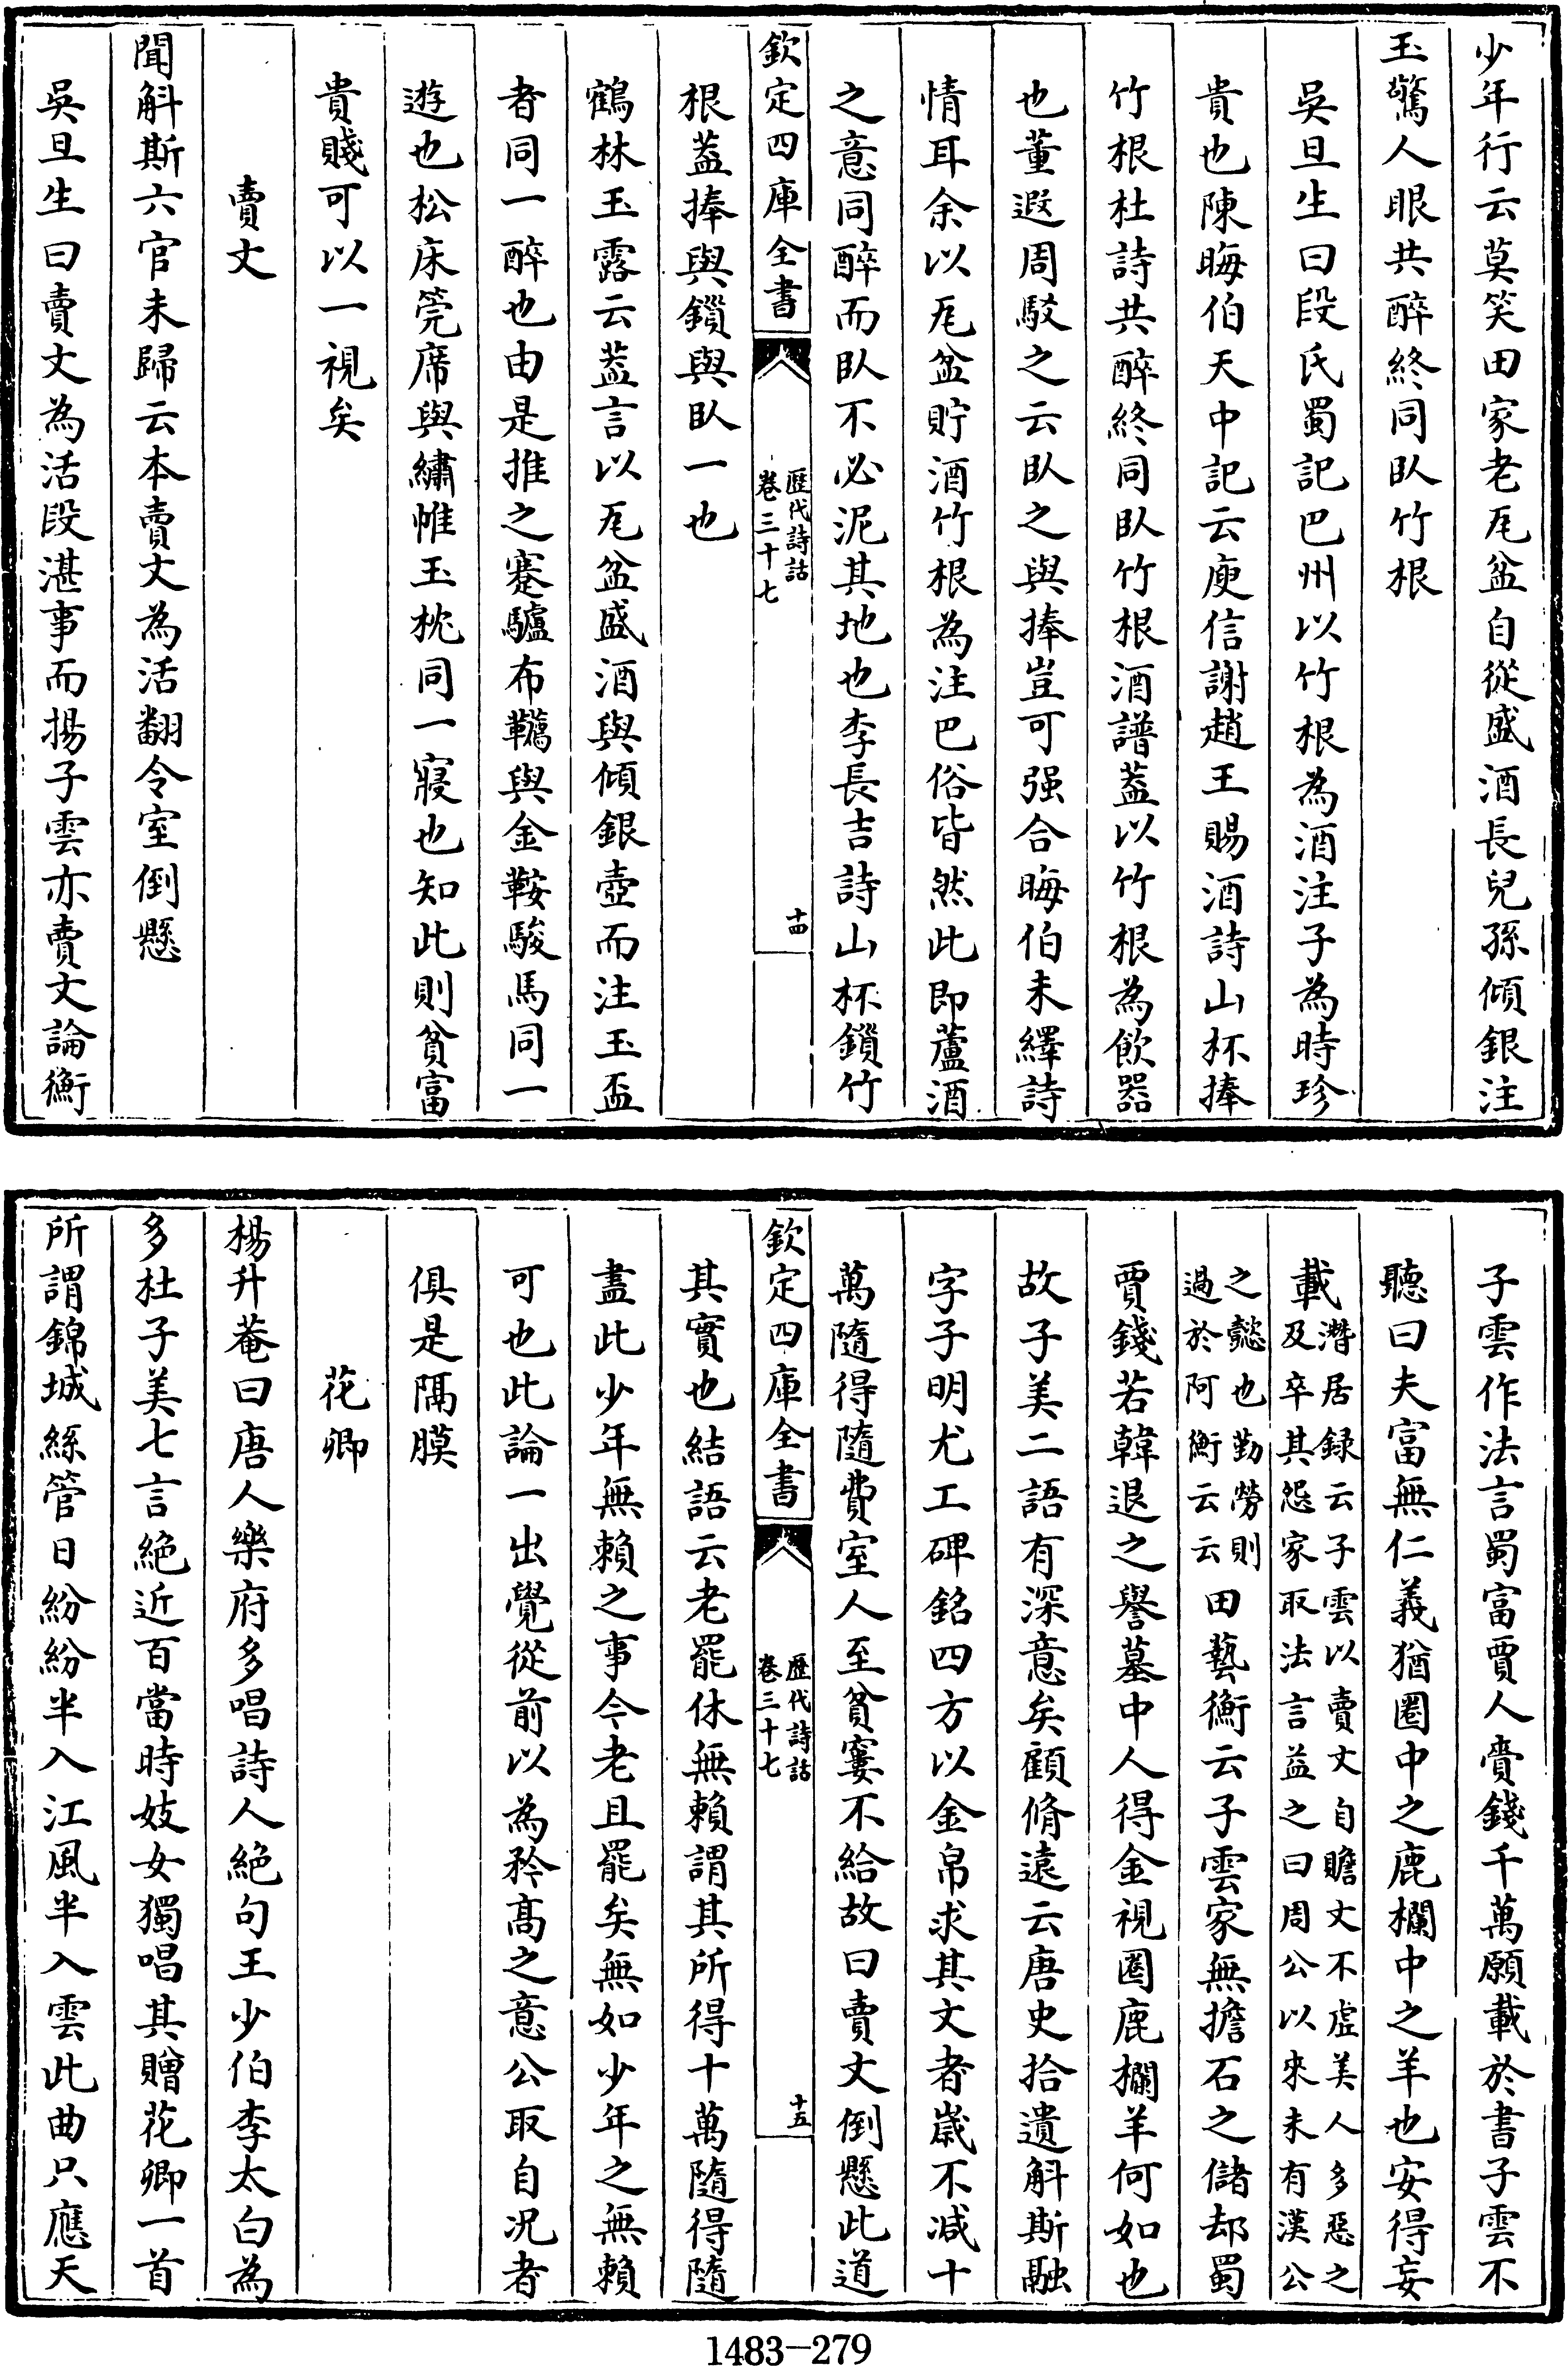 少年行云莫笑田家老瓦盆自從盛酒長兒孫傾銀注
玉驚人眼共醉終同臥竹根
吳旦生曰段氏蜀記巴州以竹根為酒注子為時珍
貴也陳晦伯天中記云庾信謝趙王賜酒詩山杯捧
竹根杜詩共醉終同臥竹根酒譜葢以竹根為飲器
也董遐周駁之云臥之與捧豈可强合晦伯未繹詩
情耳余以瓦盆貯酒竹根為注巴俗皆然此即蘆酒
之意同醉而臥不必泥其地也李長吉詩山杯鎖竹
欽定四庫全書
歷代詩話
卷三十七
十四
根葢捧與鎖與臥一也
鶴林玉露云葢言以瓦盆盛酒與傾銀壺而注玉盃
者同一醉也由是推之蹇驢布韉與金鞍駿馬同一
遊也松床筦席與繡帷玉枕同一寢也知此則貧富
貴賤可以一視矣
賣文
聞斛斯六官未歸云本賣文為活翻令室倒懸
吳旦生曰賣文為活段湛事而揚子雲亦賣文論衡
子雲作法言蜀富賈人賫錢千萬願載於書子雲不
聽曰夫富無仁義猶圈中之鹿欄中之羊也安得妄
載
潛居録云子雲以賣文自贍文不虛美人多惡之
及卒其怨家取法言益之曰周公以來未有漢公
之懿也勤勞則
過於阿衡云云
田藝衡云子雲家無擔石之儲却蜀
賈錢若韓退之譽墓中人得金視圈鹿欄羊何如也
故子美二語有深意矣顧脩遠云唐史拾遺斛斯融
字子明尤工碑銘四方以金帛求其文者歲不減十
萬隨得隨費室人至貧窶不給故曰賣文倒懸此道
欽定四庫全書
歷代詩話
卷三十七
十五
其實也結語云老罷休無賴謂其所得十萬隨得隨
盡此少年無賴之事今老且罷矣無如少年之無賴
可也此論一出覺從前以為矜高之意公取自况者
俱是隔膜
花卿
楊升菴曰唐人樂府多唱詩人絕句王少伯李太白為
多杜子美七言絕近百當時妓女獨唱其贈花卿一首
所謂錦城絲管日紛紛半入江風半入雲此曲只應天
1483-279